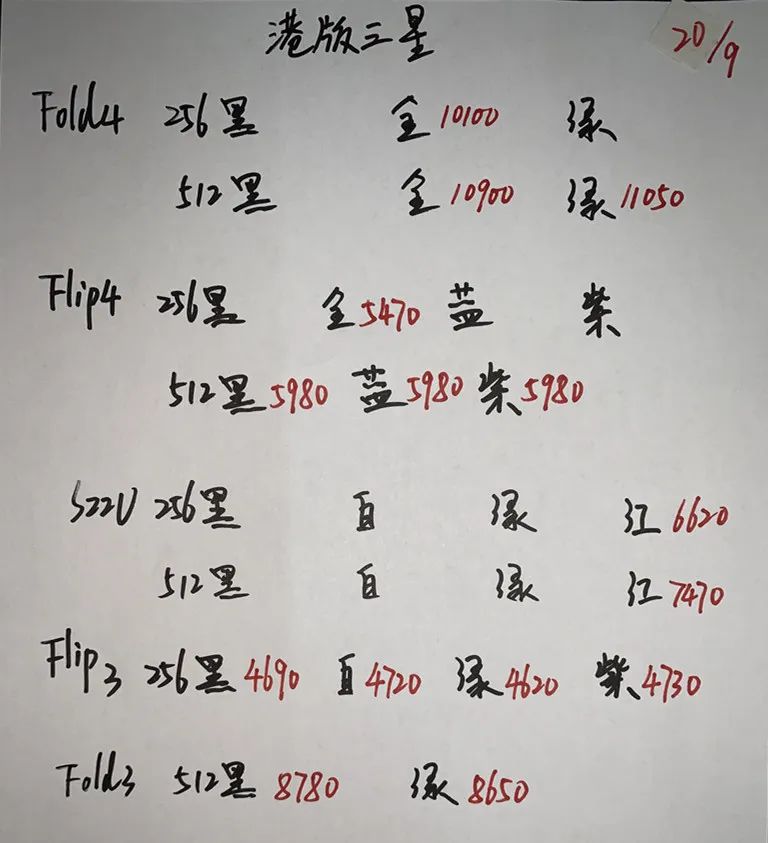 港版三星 20/9
Fold4 256黑 全10100 绿
512黑 全10900 绿11050
Flip4 256黑 全5470 蓝 紫
512黑5980 蓝5980 紫5980
S22U 256黑 白 绿 红6620
512黑 白 绿 红7470
Flip3 256黑4690 白4720 绿4620 紫4730
Fold3 512黑8780 绿8650